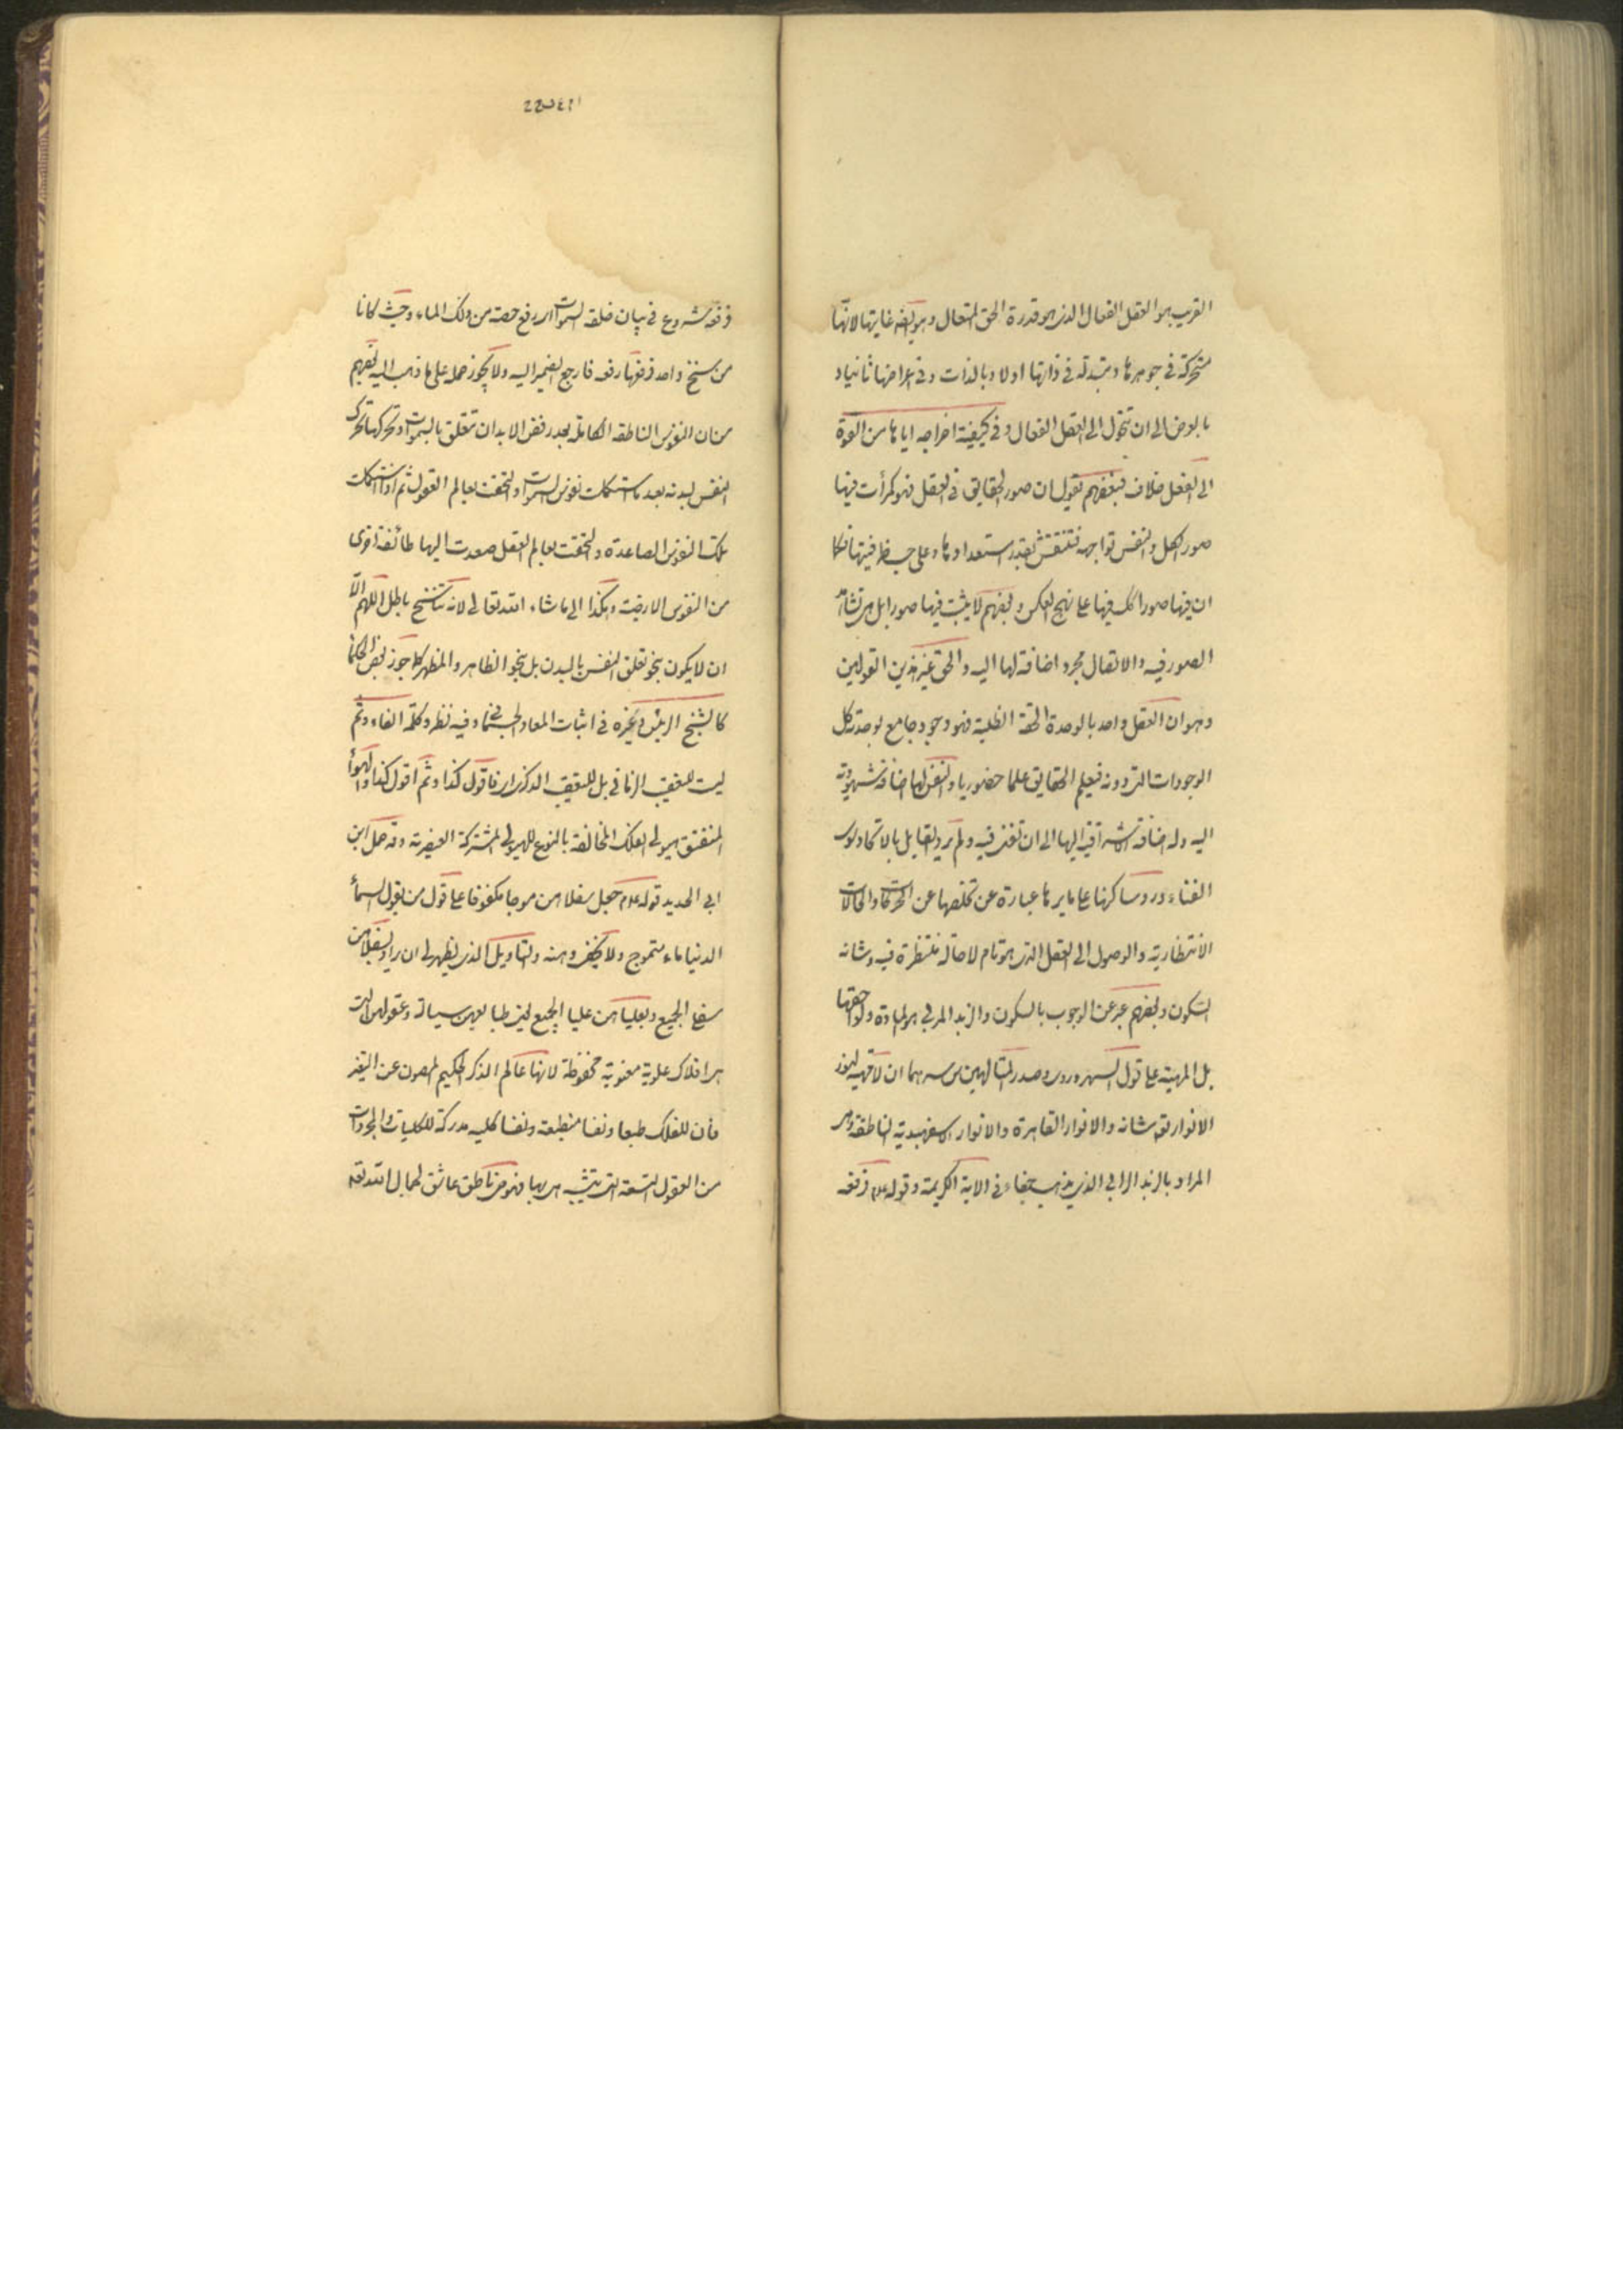 القريب هو العقل الفعال الذي هو قدرة الحق المتعال وهو ايضا غايتها لانها
متحركة في جوهرها ومتبدلة في ذاتها اولا وبالذات وفي اعراضها ثانيا و
بالعرض الى ان تتحول الى العقل الفعال وفي كيفية اخراجه اياها من القوة
الى الفعل خلاف فبعضهم يقول ان صور الحقايق في العقل فهو كمرأت فيها
صور الكل والنفس تواجهه فتنتقش بقدر استعدادها وعلى حسب
ان فيها صورا فيها على نهج العكس وبعضهم لا يثبت فيها صورا بل هي
الصور فيه والاتصال مجرد اضافة لها اليه والحق غير هذين القولين
وهو ان العقل واحد بالوحدة الحقة الظلية فهو وجود جامع بوحدته كل
الوجودات التي دونه فيعلم الحقايق علما حضوريا والنفس لها اضافة شهودية
اليه وله اضافة اشراقية اليها الى ان تفنى فيه ولم يرد القايل بالاتحاد سوى
الفناء ودروسا كهنا على ما يرها عبارة عن تخلصها عن الحركات والحالات
الانتظارية والوصول الى العقل الذي هو تام لا حالة منتظرة فيه وشانه
السكون وبعضهم عبر عن الوجوب بالسكون والزبد المرئي هو المادة ولواحقها
بل المهية على قول السهروردي وصدر المتالهين س سرهما ان لا مهية لنور
الانوار تعه شانه والانوار القاهرة والانوار الاسفهبدية الناطقة وهي
المراد بالزبد الرابي الذي يذهب جفاء في الاية الكريمة وقوله علم فرفعه
فرفعه شروع في بيان خلقة السموات اي رفع حصة من ذلك الماء وحيث كانا
من سنخ واحد فرفعها رفعه فارجع الضمير اليه ولا يجوز حمله على ما ذهب اليه بعضهم
من ان النفوس الناطقة الكاملة بعد رفض الابدان تتعلق بالسموات وتحركها تحرك
النفس لبدنه بعد ما استكملت نفوس السموات والتحقت بعالم العقول ثم اذا استكملت
تلك النفوس الصاعدة والتحقت بعالم العقل صعدت اليها طائفة اخرى
من النفوس الارضية وهكذا الى ما شاء الله تعالى لانه تناسخ باطل اللهم الا
ان لا يكون نحو تعلق النفس بالبدن بل نحو الظاهر والمظهر كما جوز بعض الحكما
كالشيخ الرئيس وغيره في اثبات المعاد الجسماني وفيه نظر وكلمة الفاء وثم
ليست للتعقيب الزماني بل للتعقيب الذكري فاقول كذا وثم اقول كذا والهوأ
المنفتق هيولى الفلك المخالفة بالنوع للهيولى المشتركة العنصرية وقد حمل ابن
ابي الحديد قوله علم جعل سفلاهن موجا مكفوفا على قول من يقول السمأ
الدنيا ماء متموج ولا يخفى وهنه والتاويل الذي يظهر لي ان يراد بسفلاهن
سفلي الجميع وبعلياهن عليا الجميع فان طبايعهن سيالة وعقولهن التي
هي افلاك علوية معنوية محفوظة لانها عالم الذكر الحكيم المصون عن التغير
فأن للفلك طبعا ونفسا منطبعة ونفسا كلية مدركة للكليات والمجردات
من العقول التسعة التي يتشبه هي بها فهو حي ناطق عاشق لجمال الله تعه